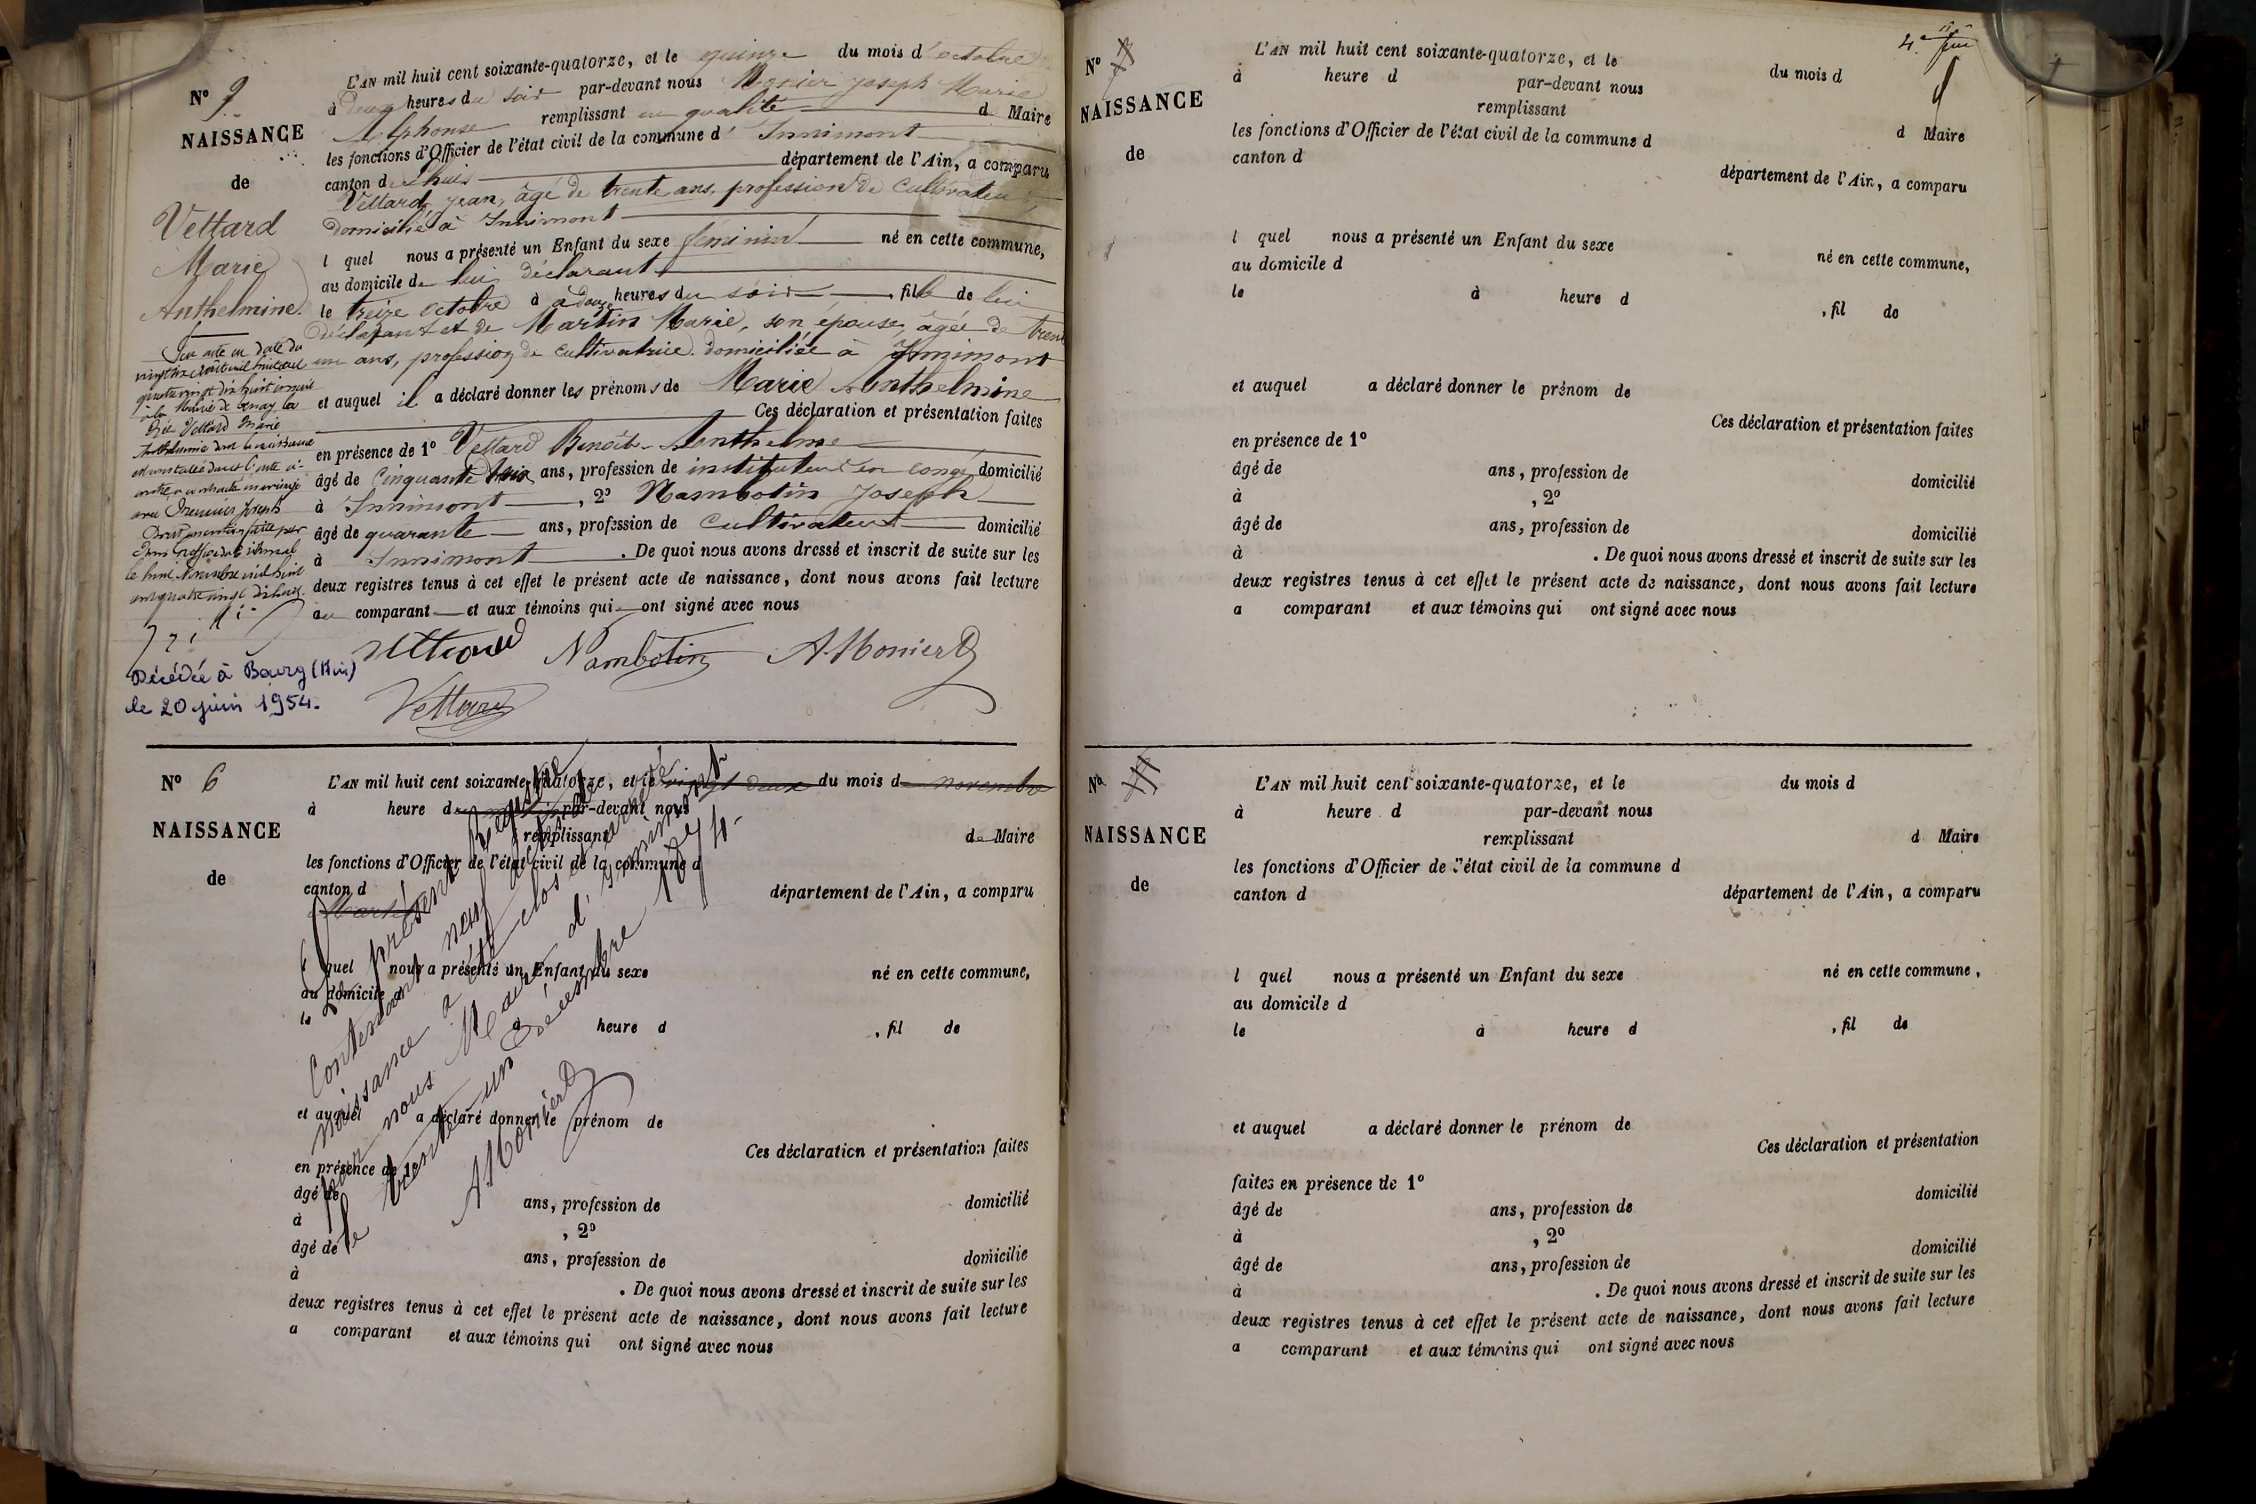 N° 9
NAISSANCE
de
Vettard
Marie
Anthelmine
L'AN mil huit cent soixante-quatorze, et le quinze du mois d'octobre
à deux heures du soir par-devant nous Monier Joseph Marie
Alphonse remplissant en qualité d Maire
les fonctions d'Officier de l'état civil de la commune d'Innimont
canton de Lhuis département de l'Ain, a comparu
Vettard, Jean, âgé de trente ans, profession de Cultivateur,
domicilié à Innimont
l quel nous a présenté un Enfant du sexe féminin né en cette commune,
au domicile de lui déclarant
le treize octobre à heures du soir, fille de lui
déclarant et de Martin Marie, son épouse, âgée de trente
un ans, profession de cultivatrice domiciliée à Innimont
et auquel il a déclaré donner les prénoms de Marie Anthelmine
Ces déclaration et présentation faites
en présence de 1° Vettard Benoît-Anthelme
âgé de Cinquante trois ans, profession de instituteur en congé domicilié
à Innimont, 2° Nambotin Joseph
âgé de quarante ans, profession de Cultivateur domicilié
à Innimont. De quoi nous avons dressé et inscrit de suite sur les
deux registres tenus à cet effet le présent acte de naissance, dont nous avons fait lecture
au comparant et aux témoins qui ont signé avec nous
Par acte en date du
vingt six août mil huit cent
quatre vingt dix huit inscrit
à la Mairie de la
dite Vettard Marie
Anthelmine dont la naissance
est constatée dans l'acte ci-
contre a contracté mariage
avec Joseph
Dont mention faite par
le huit Novembre mil huit
cent quatre vingt dix huit.
Décédée à Bourg (Ain)
le 20 juin 1954.
Vettard Nambotin A. Monier
Vettard
N° 6
NAISSANCE
de
L'AN mil huit cent soixante-quatorze, et le vingt deux du mois d novembre
à heure d par-devant nous
remplissant de Maire
les fonctions d'Officier de l'état civil de la commune d
canton d département de l'Ain, a comparu
l quel nous a présenté un Enfant du sexe né en cette commune,
au domicile d
le à heure d, fil de
et auquel a déclaré donner le prénom de
Ces déclaration et présentation faites
en présence de 1°
âgé de ans, profession de domicilié
à, 2°
âgé de ans, profession de domicilié
à. De quoi nous avons dressé et inscrit de suite sur les
deux registres tenus à cet effet le présent acte de naissance, dont nous avons fait lecture
a comparant et aux témoins qui ont signé avec nous
Le présent Registre
Contenant neuf actes de
naissance a été clos et arrêté
par nous Maire d'Innimont
le trente un Décembre 1874.
A. Monier
4e
N° 7
NAISSANCE
de
L'AN mil huit cent soixante-quatorze, et le du mois d
à heure d par-devant nous
remplissant d Maire
les fonctions d'Officier de l'état civil de la commune d
canton d département de l'Ain, a comparu
l quel nous a présenté un Enfant du sexe né en cette commune,
au domicile d
le à heure d, fil de
et auquel a déclaré donner le prénom de
Ces déclaration et présentation faites
en présence de 1°
âgé de ans, profession de domicilié
à, 2°
âgé de ans, profession de domicilié
à. De quoi nous avons dressé et inscrit de suite sur les
deux registres tenus à cet effet le présent acte de naissance, dont nous avons fait lecture
a comparant et aux témoins qui ont signé avec nous
N°
NAISSANCE
de
L'AN mil huit cent soixante-quatorze, et le du mois d
à heure d par-devant nous
remplissant d Maire
les fonctions d'Officier de l'état civil de la commune d
canton d département de l'Ain, a comparu
l quel nous a présenté un Enfant du sexe né en cette commune,
au domicile d
le à heure d, fil de
et auquel a déclaré donner le prénom de
Ces déclaration et présentation
faites en présence de 1°
âgé de ans, profession de domicilié
à, 2°
âgé de ans, profession de domicilié
à. De quoi nous avons dressé et inscrit de suite sur les
deux registres tenus à cet effet le présent acte de naissance, dont nous avons fait lecture
a comparant et aux témoins qui ont signé avec nous